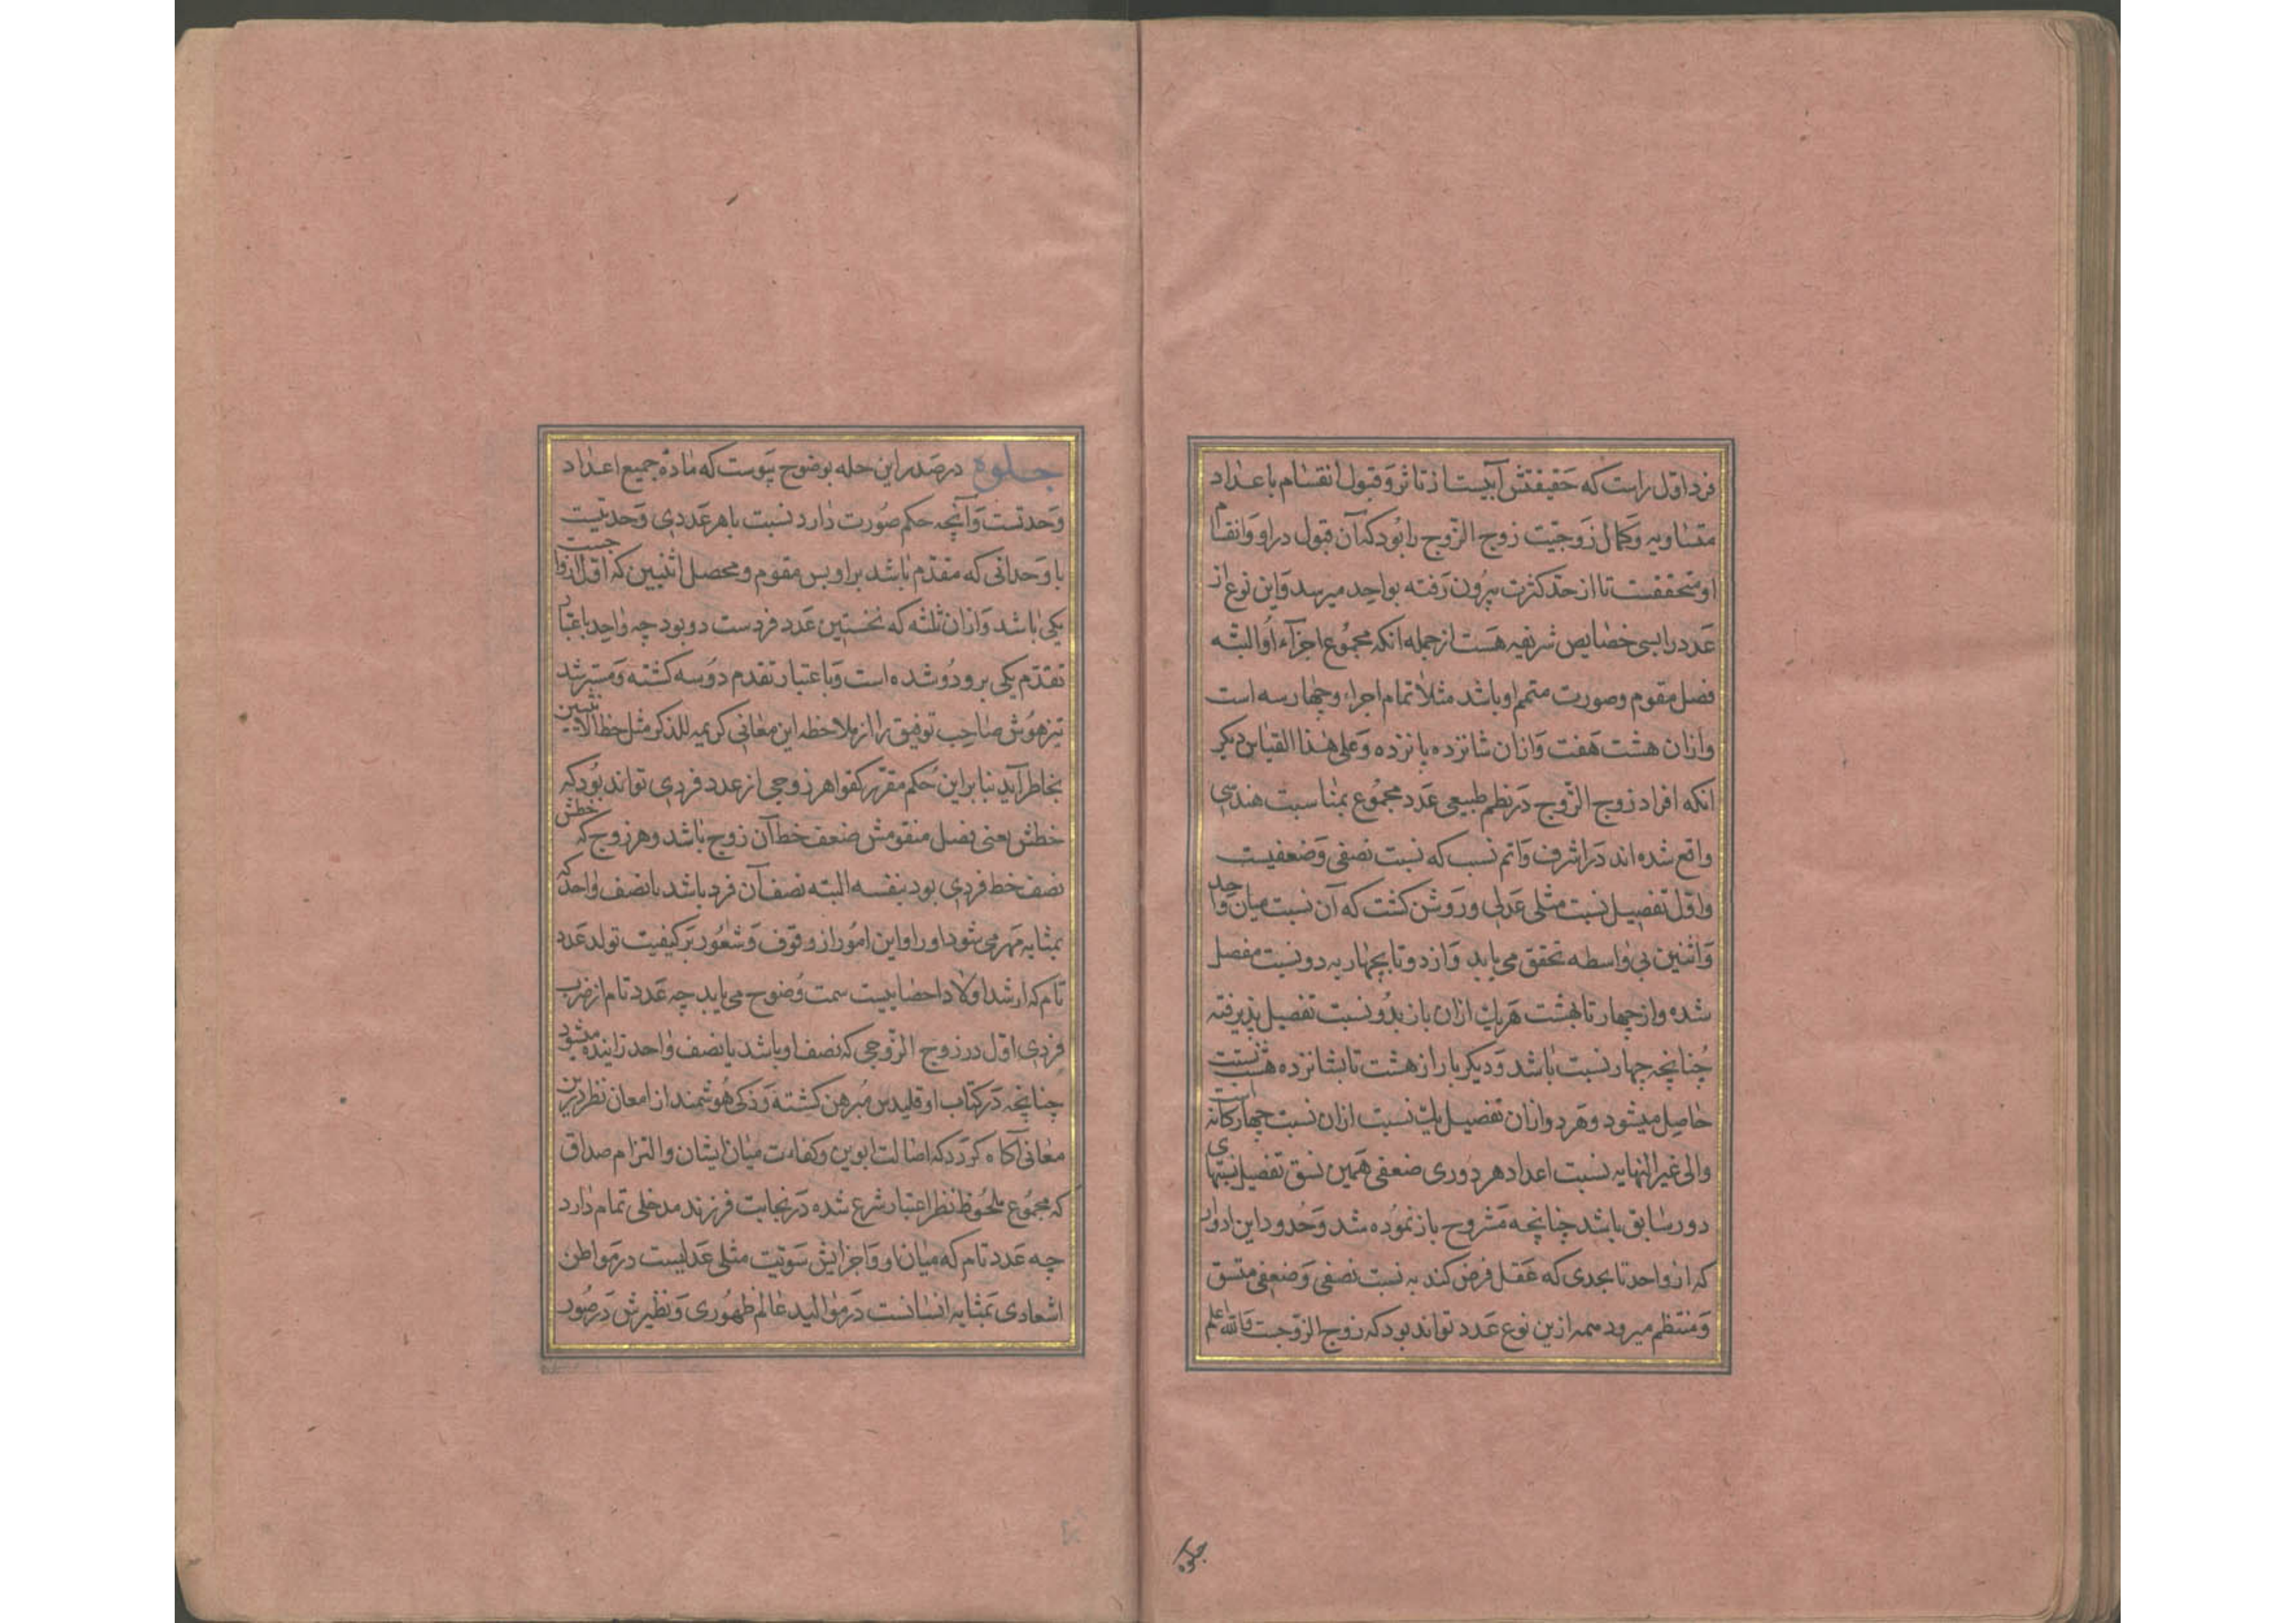 فرد اول راست که حقیقتش آبیست از تاثر و قبول انقسام باعداد
متساویه و کمال زوجیّت زوج الزّوج را بود که آن قبول در او و انقسام
او متحققست تا از حدّ کثرت بیرون رفته بواحد میرسد و این نوع از
عدد را بسی خصایص شریفه هست از جمله انکه مجموع اجزاء او البتّه
فصل مقوم و صورت متمم او باشد مثلا تمام اجزاء و چهار سه است
و ازان هشت هفت و ازان شانزده پانزده و علی هذا القیاس دیکر
انکه افراد زوج الزّوج در نظم طبیعی عدد مجموع بمناسبت هندسی
واقع شده اند در اشرف و اتم نسب که نسبت نصفی و ضعفیست
و اول تفصیل نسبت مثلی عدلی و روشن کشت که آن نسبت میان واحد
و اثنین بی واسطه تحقق می یابد و از دو تا بچهار به دو نسبت مفصل
شده و از چهار تا بهشت هریک ازان باز بدو نسبت تفصیل پذیرفته
چنانچه چهار نسبت باشد و دیکر بار از هشت تا بشانزده هشت نسبت
حاصل میشود و هر دو ازان تفصیل یک نسبت ازان نسبت چهارکانه
والی غیر النهایه نسبت اعداد هر دوری ضعفی همین نسق تفصیل نسبتهای
دور سابق باشد چنانچه مشروح باز نموده شد و حدود این ادوار
که از واحد تا بحدی که عقل فرض کند به نسبت نصفی و ضعفی متسق
و منتظم میرود همه ازین نوع عدد تواند بود که زوج الزّوجست والله اعلم
جلوه
جلوه در صدر این حله بوضوح پیوست که مادّه جمیع اعداد
وحدتست و آنچه حکم صورت دارد نسبت با هر عددی وحدتیست
با وحدانی که مقدّم باشد براو پس مقوم و محصل اثنین که اول ازواجست
یکی باشد و ازان ثلثه که نخستین عدد فردست دو بود چه واحد باعتبار
تقدّم یکی برو دو شده است و باعتبار تقدم دو سه کشته و مسترشد
تیزهوش صاحب توفیق را از ملاحظه این معانی کریمه للذکر مثل حظ الانثیین
بخاطر آید بنابراین حکم مقرر کفو هر زوجی از عدد فردی تواند بود که
خطش یعنی فصل منقومش ضعف خط آن زوج باشد و هر زوج که خطش
نصف خط فردی بود بنفسه البته نصف آن فرد باشد با نصف واحد که
بمثابه مهر می شود او را و این امور از وقوف و شعور بر کیفیت تولد عدد
تام که ارشد اولاد احصاییست سمت وضوح می یابد چه عدد تام از ضرب
فردی اول در زوج الزّوجی که نصف او باشد یا نصف واحد زاینده میشود
چنانچه در کتاب اوقلیدس مبرهن کشته و ذکی هوشمند از امعان نظر درین
معانی آکاه کردد که اصالت ابوین و کفاءت میان ایشان و التزام صداق
که مجموع ملحوظ نظر اعتبار شرع شده در نجابت فرزند مدخلی تمام دارد
چه عدد تام که میان او و اجزایش سویّت مثلی عدلیست در مواطن
اشعادی بمثابه انسانست در موالید عالم ظهوری و نظیرش در صور